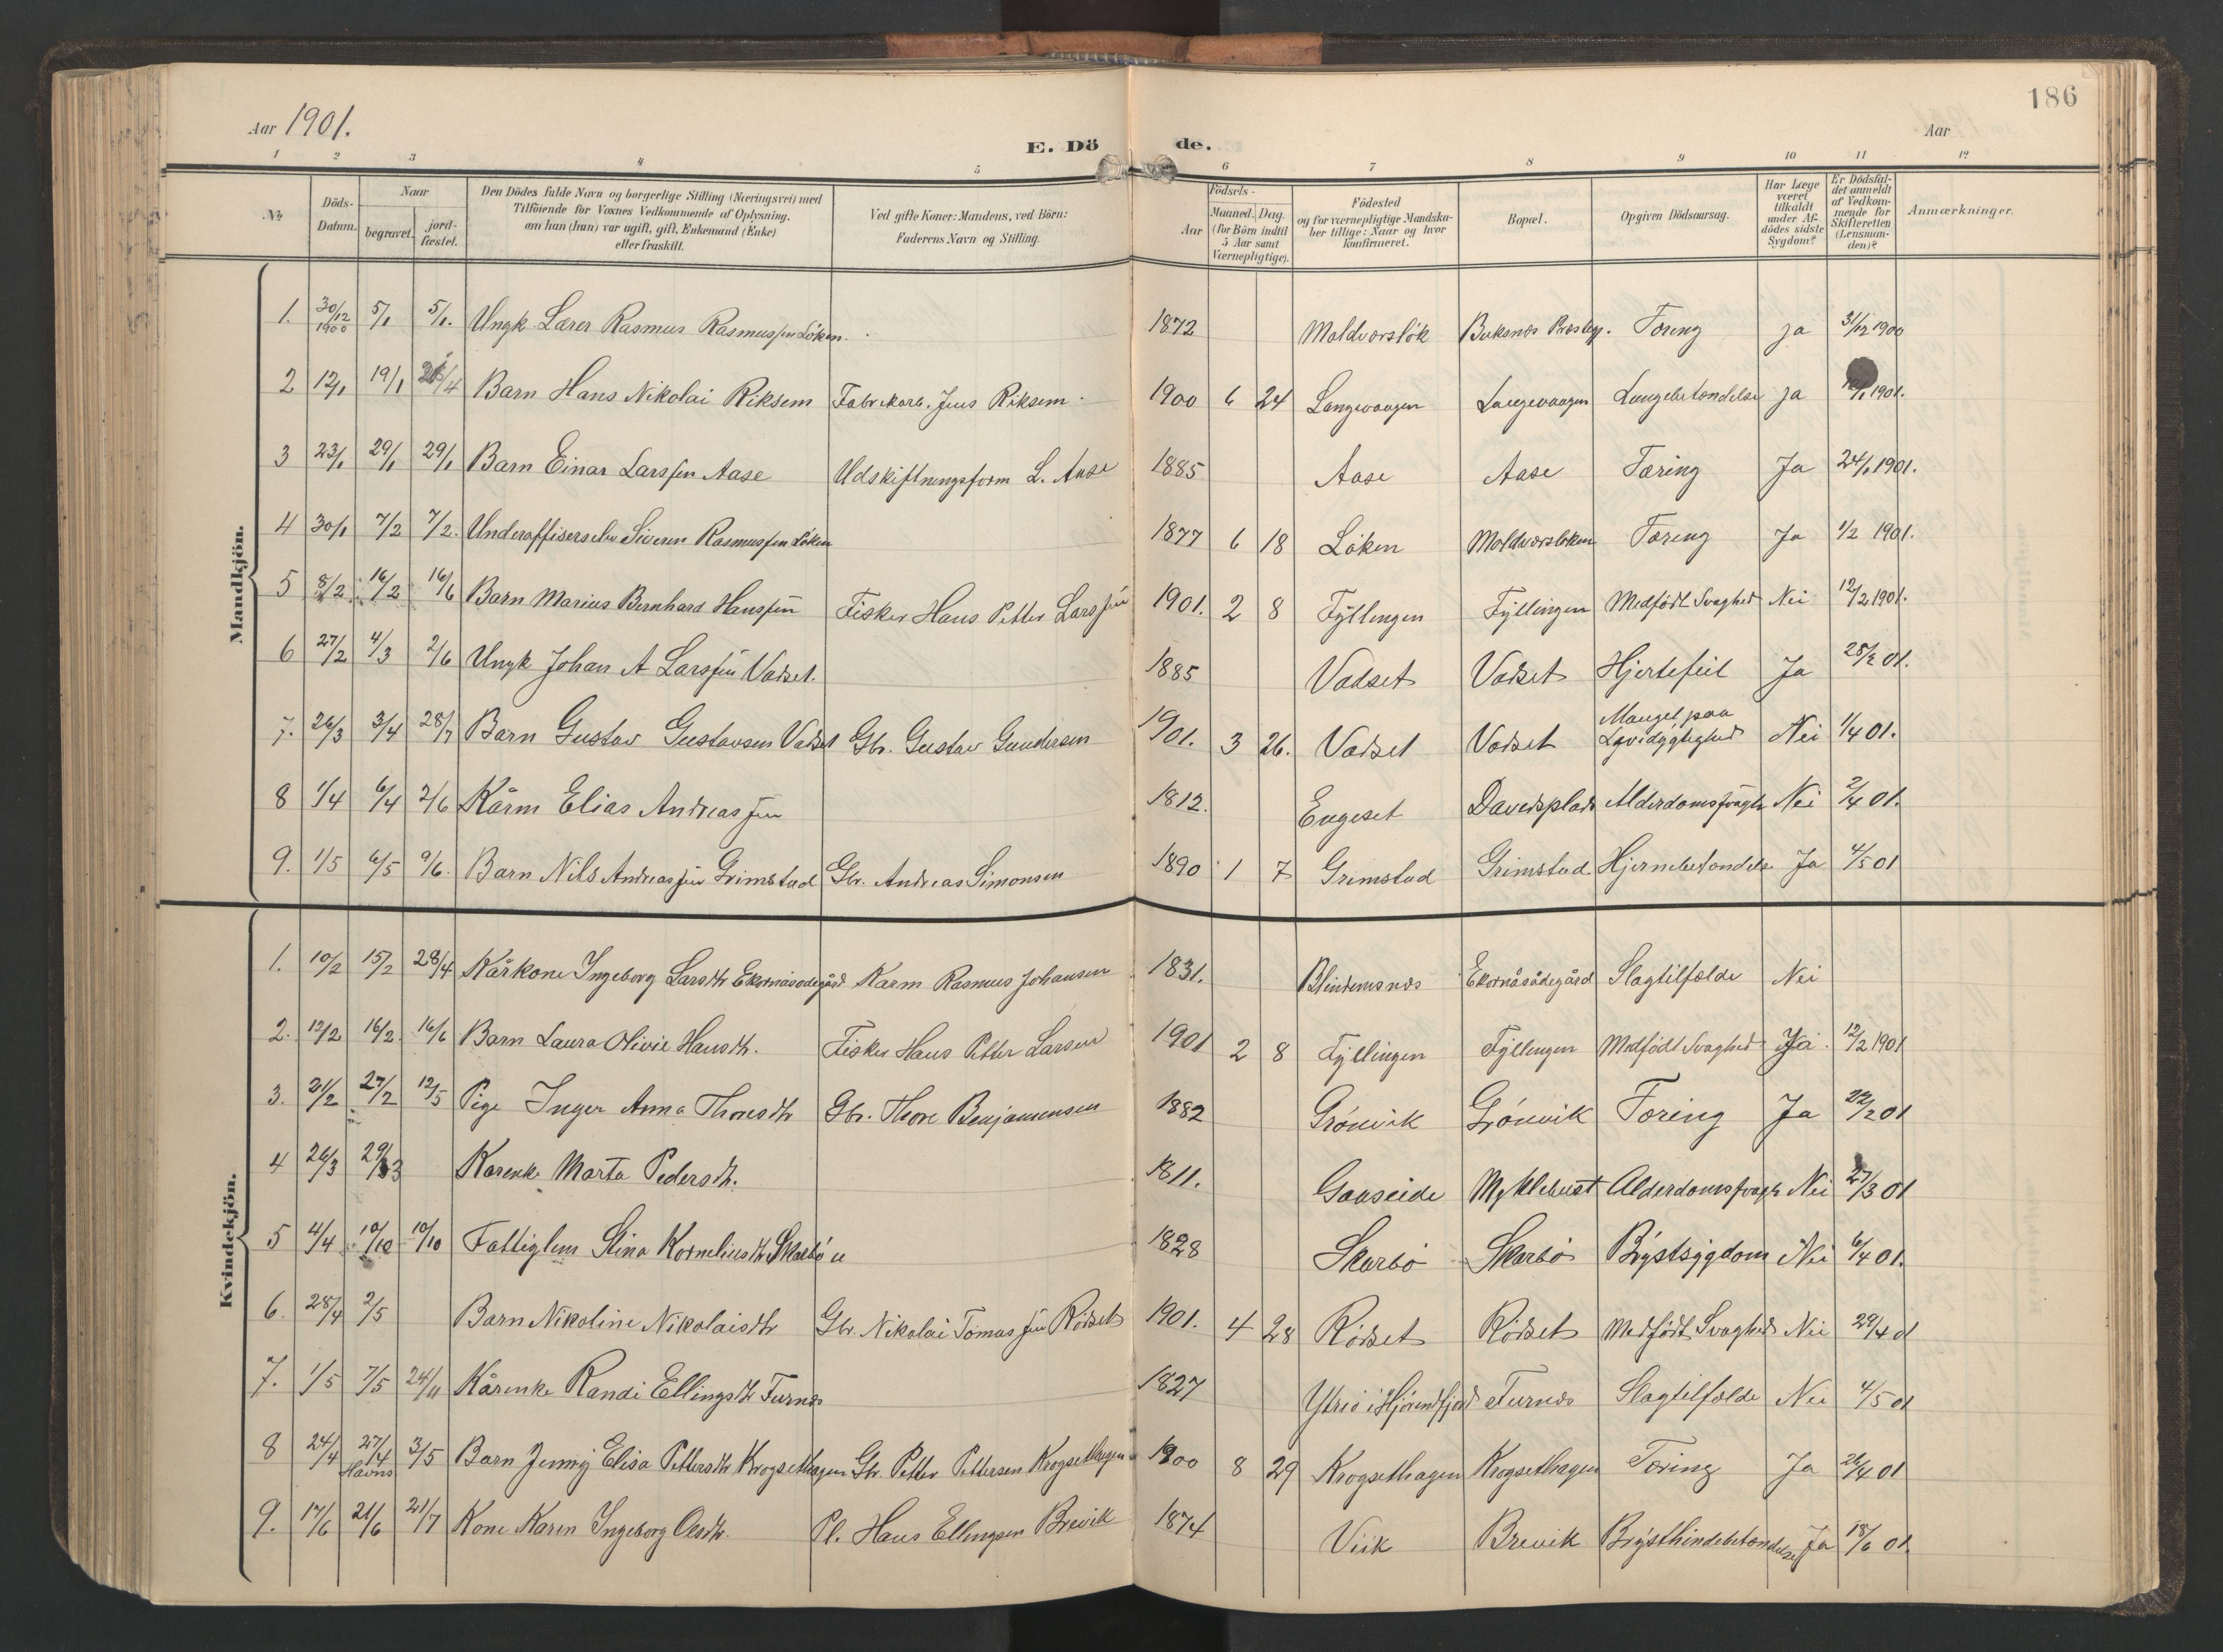 186
Aar 1901.
E. Döde.
Aar
1 2 3 4 5 6 7 8 9 10 11 12
№
Döds-Datum.
Naar
begravet.
jord-fæstet.
Den Dödes fulde Navn og borgerlige Stilling (Næringsvei) med
Tilföiende for Voxnes Vedkommende af Oplysning,
om han (hun) var ugift, gift, Enkemand (Enke)
eller fraskilt.
Ved gifte Koner: Mandens, ved Börn:
Faderens Navn og Stilling.
Födsels-
Aar
Maaned. Dag.
(for Börn indtil
5 Aar samt
Værnepligtige).
Födested
og for værnepligtige Mandska-
ber tillige: Naar og hvor
konfirmeret.
Bopæl.
Opgiven Dödsaarsag.
Har Læge
været
tilkaldt
under Af-
dödes sidste
Sygdom?
Er Dödsfal-
det anmeldt
af Vedkom-
mende for
Skifteretten
(Lensman-
den)?
Anmærkninger.
Mandkjön.
1. 30/12 1900 5/1 5/1. Ungk. Lærer Rasmus Rasmussen Löken. 1872 Moldværslök Buksnæs Præstegj. Tæring ja 31/12 1900
2 12/1 19/1 Barn Hans Nikolai Riksem Fabrikarb. Jens Riksem 1900 6 24 Langevaagen Langevaagen Lungebetændelse ja 1901.
3 23/1 29/1 29/1 Barn Einar Larssen Aase Udskiftningsform L. Aase 1885 Aase Aase Tæring Ja 24/1 1901.
4 30/1 7/2 7/2. Underoffiserselev Siveren Rasmussen Löken 1877 6 18 Löken Moldværsløken Tæring Ja 1/2 1901.
5 8/2 16/2 16/6 Barn Marius Bernhard Hanssen Fisker Hans Petter Larssen 1901. 2 8 Fyllingen Fyllingen Medfödt Svaghed Nei 12/2 1901.
6 27/2 4/3 2/6 Ungk Johan A Larssen Vadset. 1885 Vadset Vadset Hjertefeil Ja 28/2 01.
7. 26/3 3/4 28/7 Barn Gustav Gustavsen Vadset Gbr. Gustav Gundersen 1901. 3 26. Vadset Vadset Mangel paa Levedygtighed Nei 1/4 01.
8 1/4 6/4 2/6 Kårm Elias Andreassen 1812. Engeset Davidsplads Alderdomssvagh Nei 2/4 01.
9. 1/5 6/5 9/6. Barn Nils Andreassen Grimstad Gbr. Andreas Simonsen 1890 1 7 Grimstad Grimstad Hjernebetændelse Ja 4/5 01
Kvindekjön.
1. 10/2 15/2 28/4 Kårkone Ingeborg Larsdtr Ekornåsödegård Kaarm Rasmus Johansen 1831. Blindemsnes Ekornåsödegård Slagtilfælde Nei
2. 12/2 16/2. 16/6 Barn Laura Olivie Hansdtr. Fisker Hans Petter Larsen 1901 2 8 Fyllingen Fyllingen Medfödt Svaghed Ja. 12/2 1901
3. 21/2 27/2 12/5 Pige Inger Anna Thoresdtr Gbr. Thore Benjaminsen 1882 Grönvik Grönvik Tæring Ja 22/2 01
4 26/3 29/3 Karenke Marta Pedersdtr. 1811. Gaaseide Myklebust Alderdomssvagh Nei 27/3 01
5 4/4 10/10 10/10 Fattiglem Stina Korneliusdtr Skarbö u 1828 Skarbö Skarbö Brystsygdom Nei 6/4 01.
6. 28/4 2/5 Barn Nikoline Nikolaisdtr Gbr. Nikolai Tomassen Rödset 1901. 4 28 Rödset Rödset Medfödt Svaghed Nei 29/4 01
7. 1/5 7/5 24/11 Kårenke Randi Ellingsdtr Furnes 1827 Ytriö i Hjörendfjord Furnes Slagtilfælde Nei 4/5 01
8 24/4 27/4 Havns 3/5 Barn Jenny Elisa Pettersdtr Krogsethagen Gbr. Petter Pettersen Krogsethagen 1900 8 29 Krogsethagen Krogsethagen Tæring Ja 26/4 01
9. 17/6 21/6 21/7 Kone Karen Ingeborg Olsdtr. Pl. Hans Ellingsen Brevik 1874 Viik Brevik Brysthindebetændelse Ja 18/6 01.